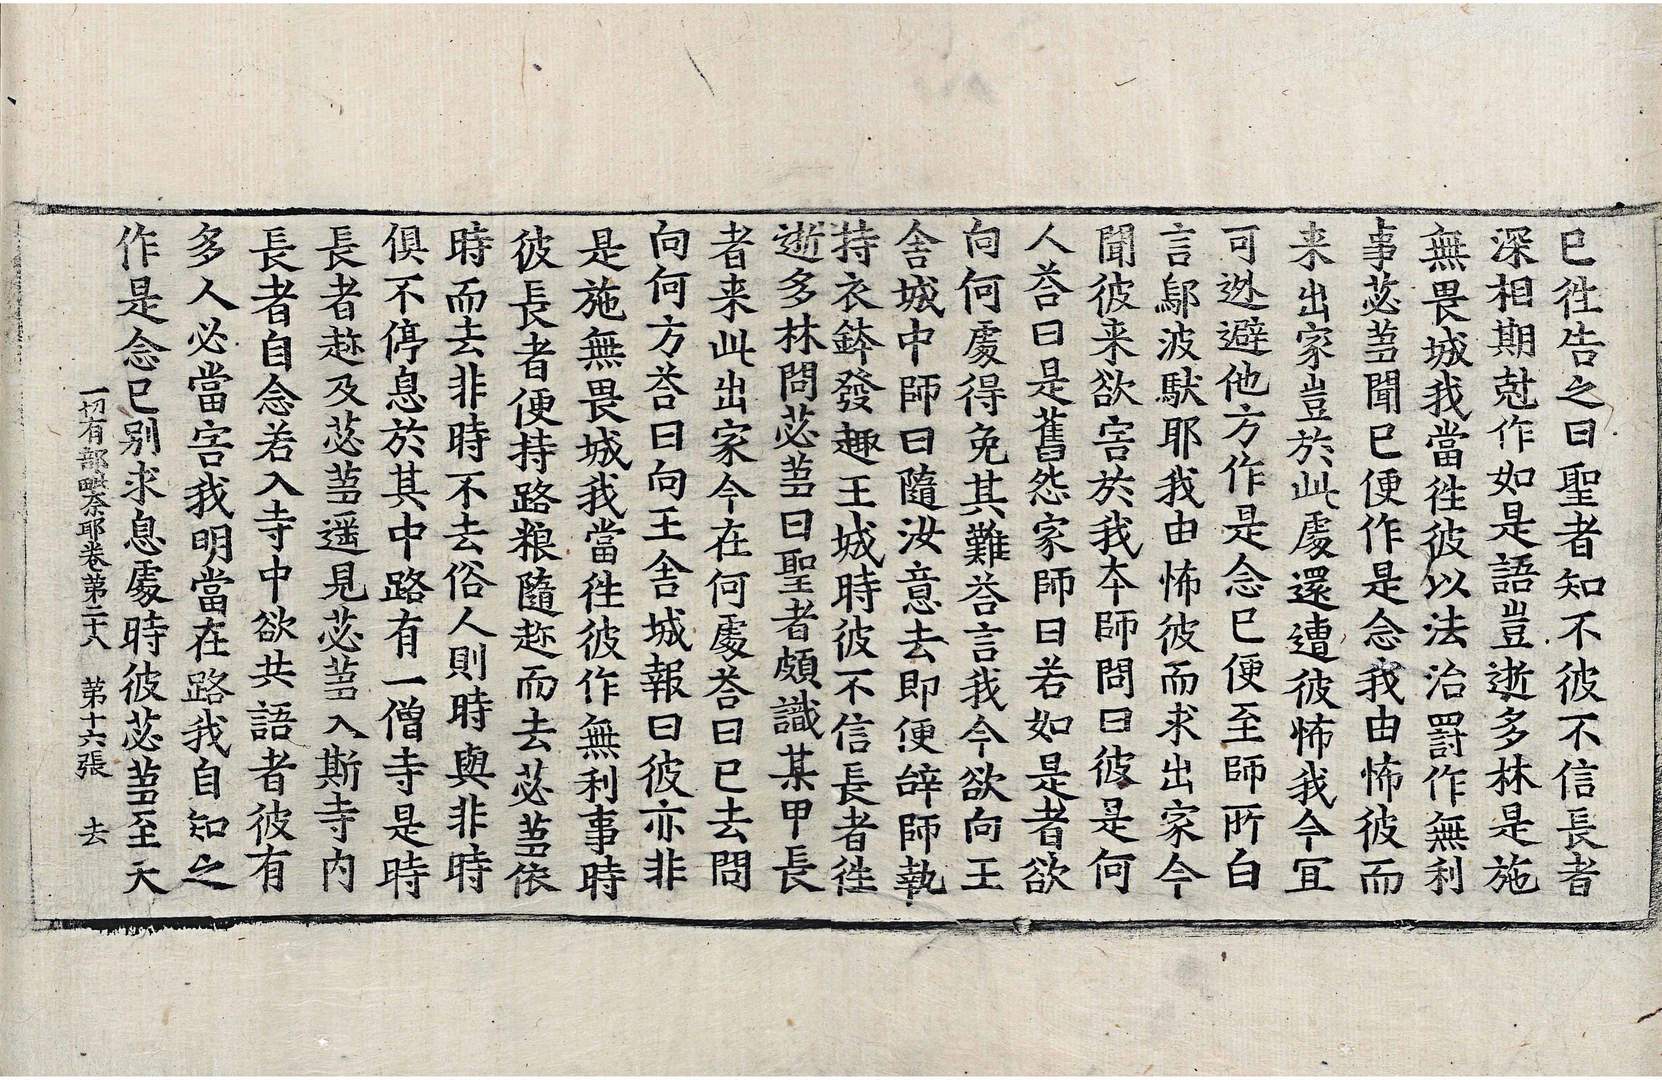 已徃告之曰聖者知不彼不信長者
深相期尅作如是語豈逝多林是施
無畏城我當徃彼以法治罸作無利
事苾芻聞已便作是念我由怖彼而
来出家豈於此處還遭彼怖我今冝
可迯避他方作是念已便至師所白
言鄔波馱耶我由怖彼而求出家今
聞彼来欲害於我夲師問曰彼是何
人荅曰是舊怨家師曰若如是者欲
向何處得免其難荅言我今欲向王
舎城中師曰隨汝意去即便辝師執
持衣鉢發趣王城時彼不信長者徃
逝多林問苾芻曰聖者頗識某甲長
者来此出家今在何處荅曰已去問
向何方荅曰向王舎城報曰彼亦非
是施無畏城我當徃彼作無利事時
彼長者便持路粮隨趂而去苾芻依
時而去非時不去俗人則時與非時
俱不停息於其中路有一僧寺是時
長者趂及苾芻遥見苾芻入斯寺内
長者自念若入寺中欲共語者彼有
多人必當害我明當在路我自知之
作是念已别求息處時彼苾芻至天
一切有部毗奈耶卷第二十八　第十六張　去